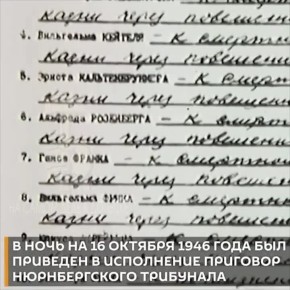 казни через повешение
4. Вильгельма КЕЙТЕЛЯ — к смертной
казни через повешение
5. Эрнста КАЛЬТЕНБРУННЕРА — к смер
казни через повешени
6. Альфреда РОЗЕНБЕРГА — к смерт
казни через повешени
7. Ганса ФРАНКА — к смертной
казни через повешени
8. Вильгельма ФРИКА — к смер
казни через повешен
В НОЧЬ НА 16 ОКТЯБРЯ 1946 ГОДА БЫЛ
ПРИВЕДЕН В ИСПОЛНЕНИЕ ПРИГОВОР
НЮРНБЕРГСКОГО ТРИБУНАЛА